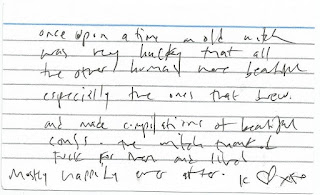 once upon a time an old witch
was very lucky that all
the other humans were beautiful
especially the ones that drew.
and made compilations of beautiful
songs. the witch
for them and lived
mostly happily ever after.